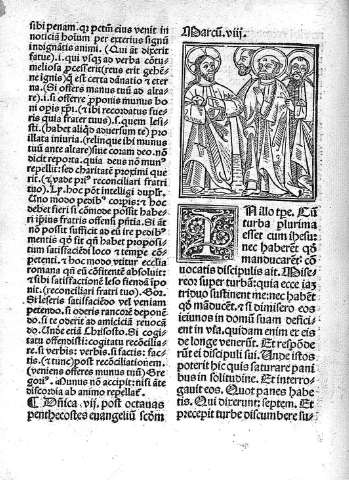 sibi penam. qr petm̄ eius venit in
noticiā hoīum per exterius signū
indignatis animi. (Qui āt dixerit
fatue).i. qui vsqz ad verba cōtu⸗
meliosa pcesserit (reus erit gehē⸗
ne ignis) qr est certa dānatio z eter
na. (Si offeres munus tuū ad altare)
.i. si offerre pponis munus ho
mini opis xpī. (z ibi recordatus fuerꝭ
quia frater tuus).s. quem lesi⸗
sti. (habet aliqd aduersum te) p
illata iniuria. (relinque ibi munus
tuū ante altare) siue coram deo. nō
dicit reporta. quia deus nō mun⁹
repellit: sed charitatē proximi que
rit. (z vade pri⁹ reconciliari fratri
tuo). Lp. hoc pōt intelligi duplr̄.
Uno modo pedib⁹ corpis: z hoc
debet fieri si cōmode possit habe⸗
ri ipsius fratris offensi pñtia. Si
āt non possit sufficit ad eū ire pedib⁹
mentis qd fit qn̄ habet proposi⸗
tum satisfaciēdi loco z tempe cō⸗
petenti. z hoc modo vtitur ecclīa
romana qn̄ eū cōfitentē absoluit:
z sibi satisfactionē leso fiendā ipo⸗
nit. (reconciliari fratri tuo). Gor.
Si leseris satisfaciēdo vel veniam
petendo. si oderis rancorē deponē
do. si te oderit ad amiciciā reuocā
do. Unde etiā Chrisosto. Si cogi⸗
tatu offendisti: cogitatu recōcilia⸗
re. si verbis: verbis. si factis: fa⸗
ctis. (z tunc) post recōciliationem.
(veniens offeres munus tuū) Gre
gori⁹. Munus nō accipit: nisi āte
discordia ab animo repellat̄.
¶ Dñica .vij. post octauas
penthecostes euangeliū scōm
Marcū. viij.
IN illo tpe. Cū
turba plurima
esset cum ihesu:
nec haberet qd
manducaret: cō⸗
uocatis discipulis ait. Mise⸗
reor super turbā: quia ecce iaz
triduo sustinent me: nec habēt
qd māducēt. z si dimisero eos
ieiunos in domū suam defici⸗
ent in via. quidam enim ex eis
de longe venerūt. Et respōde
rūt ei discipuli sui. Unde istos
poterit hic quis saturare pani
bus in solitudine. Et interro⸗
gauit eos. Quot panes habe
tis. Qui dixerunt: septem. Et
precepit turbe discumbere su⸗